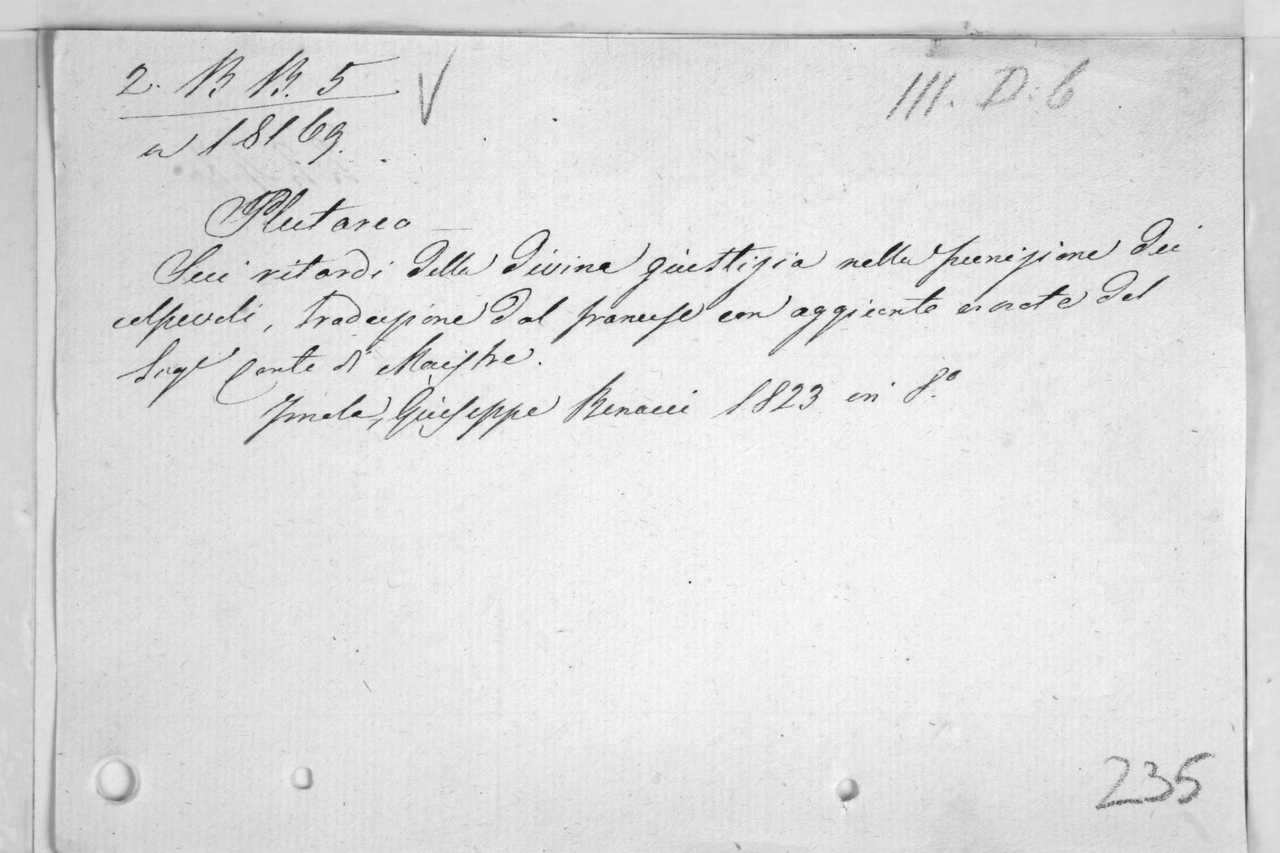 2. B B. 5 V
III. D. 6
n 18163.
Plutarco
Sui ritardi della divina giustizia nella punizione dei
colpevoli, traduzione dal francese con aggiunte e note del
Sigr Conte di Maistre.
Imola, Giuseppe Benacci 1823 in 8.o
235